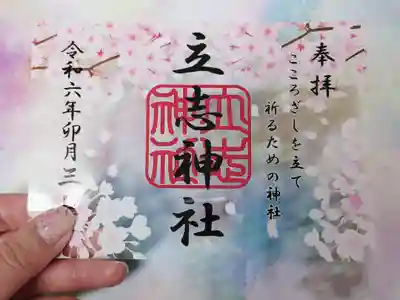 奉拝
こころざしを立て
祈るための神社
立志神社
立志神社
令和六年卯月三